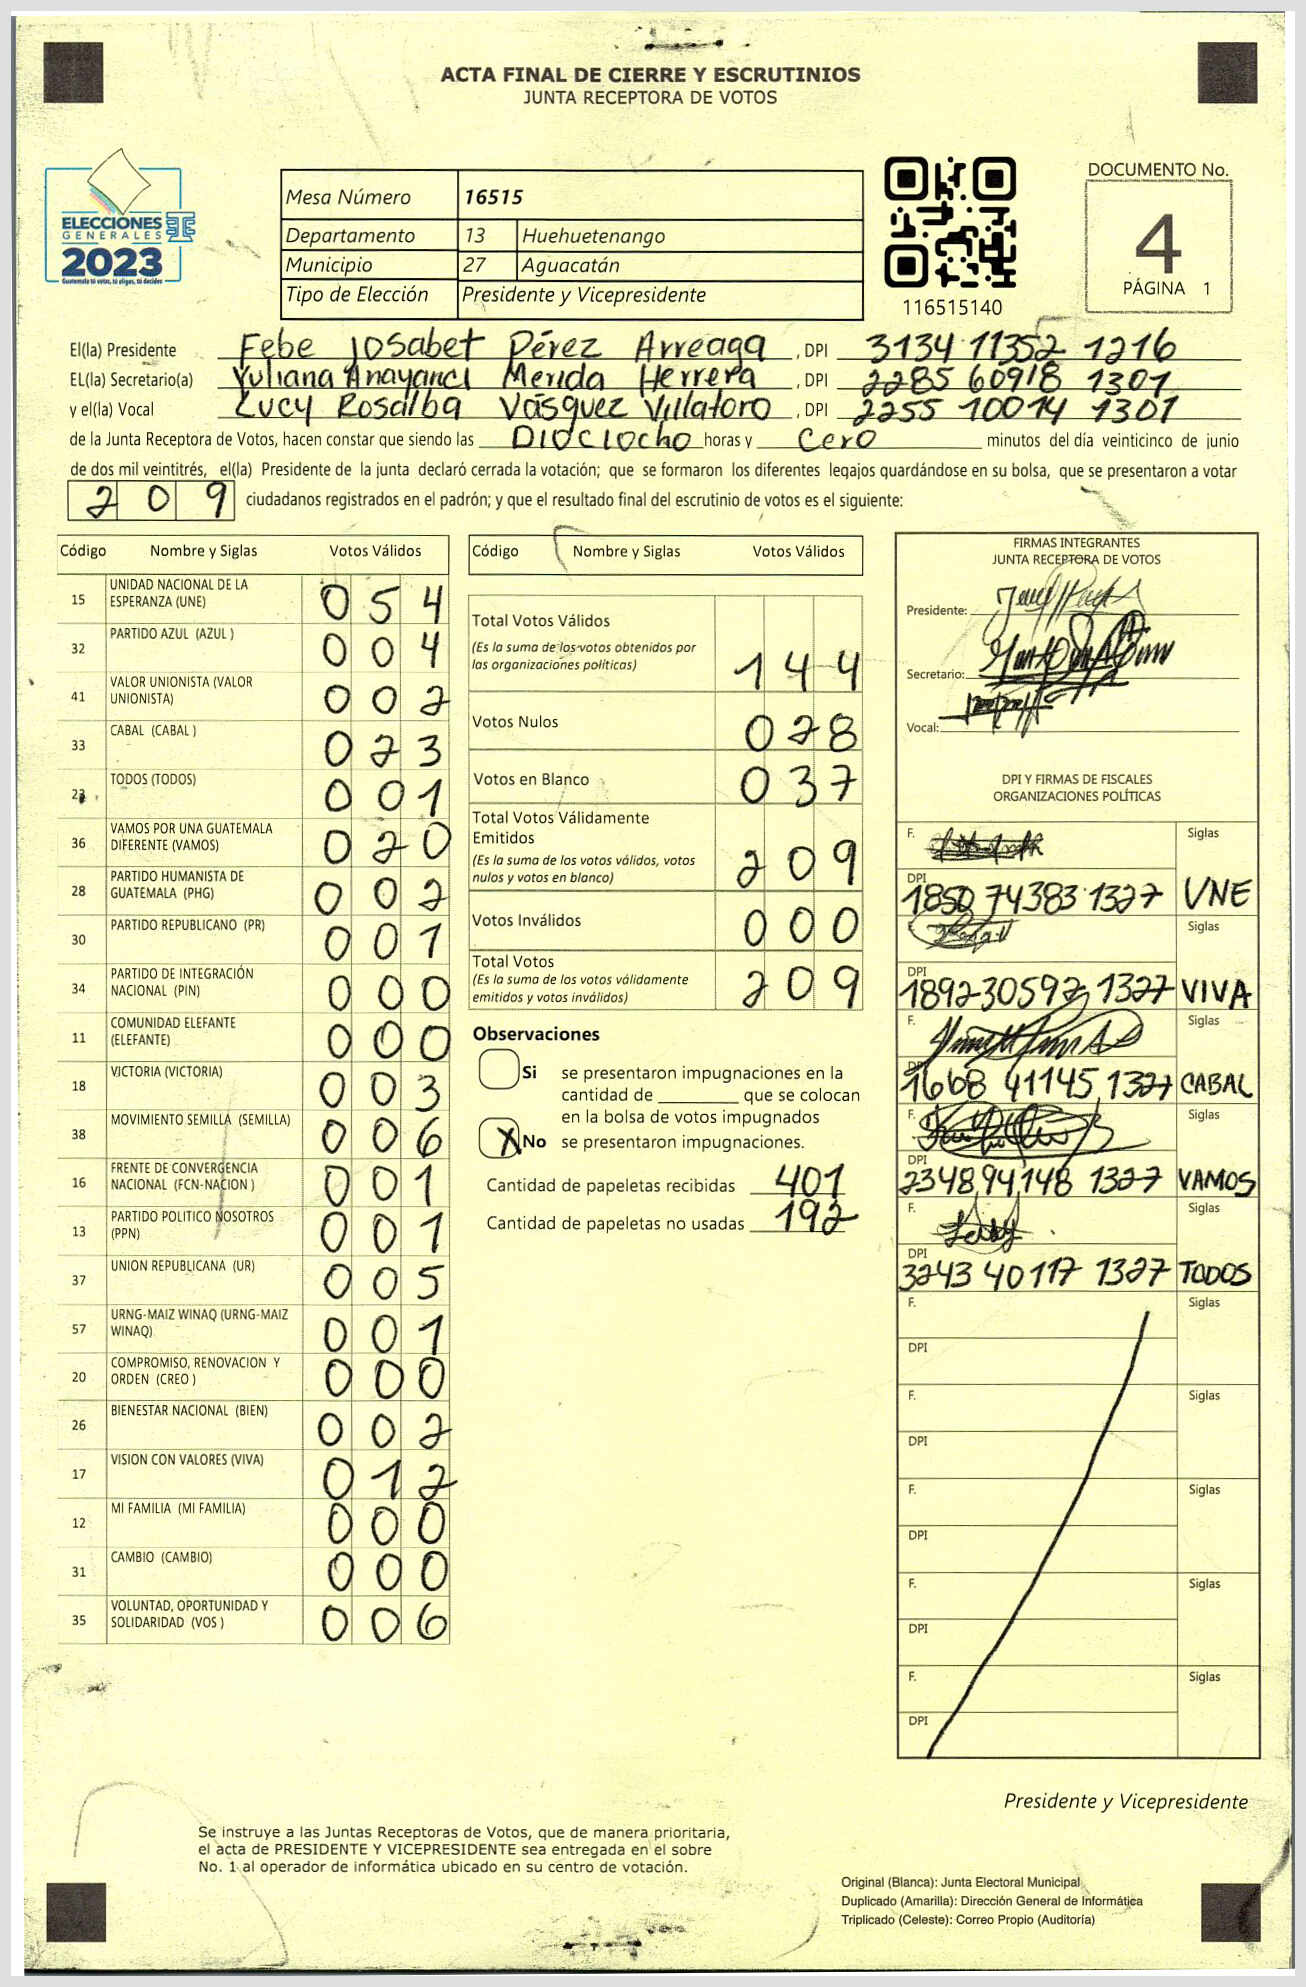 ACTA FINAL DE CIERRE Y ESCRUTINIOS
JUNTA RECEPTORA DE VOTOS
ELECCIONES
GENERALES
2023
Guatemala tú votas, tú eliges, tú decides
Mesa Número 16515
Departamento 13 Huehuetenango
Municipio 27 Aguacatán
Tipo de Elección Presidente y Vicepresidente
116515140
DOCUMENTO No.
4
PÁGINA 1
El(la) Presidente Febe Josabet Pérez Arreaga , DPI 3134 11352 1216
EL(la) Secretario(a) Yuliana Anayanci Merida Herrera , DPI 2285 60918 1301
y el(la) Vocal Lucy Rosalba Vásquez Villatoro , DPI 2255 10014 1301
de la Junta Receptora de Votos, hacen constar que siendo las Dioclocho horas y Cero minutos del día veinticinco de junio
de dos mil veintitrés, el(la) Presidente de la junta declaró cerrada la votación; que se formaron los diferentes legajos guardándose en su bolsa, que se presentaron a votar
209 ciudadanos registrados en el padrón; y que el resultado final del escrutinio de votos es el siguiente:
Código Nombre y Siglas Votos Válidos
15 UNIDAD NACIONAL DE LA ESPERANZA (UNE) 054
32 PARTIDO AZUL (AZUL ) 004
41 VALOR UNIONISTA (VALOR UNIONISTA) 002
33 CABAL (CABAL ) 023
23 TODOS (TODOS) 001
36 VAMOS POR UNA GUATEMALA DIFERENTE (VAMOS) 020
28 PARTIDO HUMANISTA DE GUATEMALA (PHG) 002
30 PARTIDO REPUBLICANO (PR) 001
34 PARTIDO DE INTEGRACIÓN NACIONAL (PIN) 000
11 COMUNIDAD ELEFANTE (ELEFANTE) 000
18 VICTORIA (VICTORIA) 003
38 MOVIMIENTO SEMILLA (SEMILLA) 006
16 FRENTE DE CONVERGENCIA NACIONAL (FCN-NACION ) 001
13 PARTIDO POLITICO NOSOTROS (PPN) 001
37 UNION REPUBLICANA (UR) 005
57 URNG-MAIZ WINAQ (URNG-MAIZ WINAQ) 001
20 COMPROMISO, RENOVACION Y ORDEN (CREO ) 000
26 BIENESTAR NACIONAL (BIEN) 002
17 VISION CON VALORES (VIVA) 012
12 MI FAMILIA (MI FAMILIA) 000
31 CAMBIO (CAMBIO) 000
35 VOLUNTAD, OPORTUNIDAD Y SOLIDARIDAD (VOS ) 006
Código Nombre y Siglas Votos Válidos
Total Votos Válidos
(Es la suma de los votos obtenidos por
las organizaciones políticas) 144
Votos Nulos 028
Votos en Blanco 037
Total Votos Válidamente
Emitidos
(Es la suma de los votos válidos, votos
nulos y votos en blanco) 209
Votos Inválidos 000
Total Votos
(Es la suma de los votos válidamente
emitidos y votos inválidos) 209
Observaciones
Si se presentaron impugnaciones en la
cantidad de ________ que se colocan
en la bolsa de votos impugnados
X No se presentaron impugnaciones.
Cantidad de papeletas recibidas 401
Cantidad de papeletas no usadas 192
FIRMAS INTEGRANTES
JUNTA RECEPTORA DE VOTOS
Presidente:
Secretario:
Vocal:
DPI Y FIRMAS DE FISCALES
ORGANIZACIONES POLÍTICAS
F. Siglas
DPI
1850 74383 1327 UNE
F. Siglas
DPI
1892 30592 1327 VIVA
F. Siglas
DPI
1668 41145 1327 CABAL
F. Siglas
DPI
2348 94148 1327 VAMOS
F. Siglas
DPI
3243 40117 1327 TODOS
F. Siglas
DPI
F. Siglas
DPI
F. Siglas
DPI
F. Siglas
DPI
F. Siglas
DPI
Presidente y Vicepresidente
Se instruye a las Juntas Receptoras de Votos, que de manera prioritaria,
el acta de PRESIDENTE Y VICEPRESIDENTE sea entregada en el sobre
No. 1 al operador de informática ubicado en su centro de votación.
Original (Blanca): Junta Electoral Municipal
Duplicado (Amarilla): Dirección General de Informática
Triplicado (Celeste): Correo Propio (Auditoría)